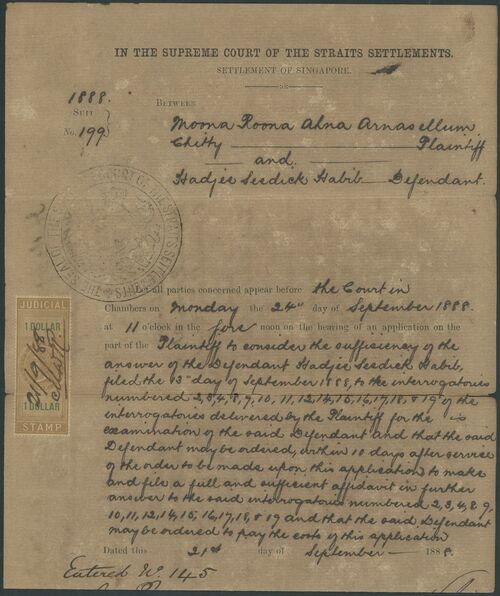 IN THE SUPREME COURT OF THE STRAITS SETTLEMENTS.
SETTLEMENT OF SINGAPORE.
1888.
SUIT
No. 199
BETWEEN
Moona Roona Ahna Arnasellum
Chitty Plaintiff
and
Hadjee Seedick Habib Defendant.
Let all parties concerned appear before the Court in
Chambers on Monday the 24th day of September 1888.
at 11 o'clock in the fore noon on the hearing of an application on the
part of the Plaintiff to consider the sufficiency of the
answer of the Defendant Hadjee Seedick Habib,
filed the 13th day of September 1888, to the interrogatories
numbered 2, 3, 4, 8, 9, 10, 11, 12, 14, 15, 16, 17, 18, & 19 of the
interrogatories delivered by the Plaintiff for the
examination of the said Defendant and that the said
Defendant may be ordered, within 10 days after service
of the order to be made upon this application, to make
and file a full and sufficient affidavit in further
answer to the said interrogatories numbered 2, 3, 4, 8, 9,
10, 11, 12, 14, 15, 16, 17, 18, & 19 and that the said, Defendant
may be ordered to pay the costs of this application
Dated this 21st day of September 1888.
Entered W. 145
JUDICIAL
1 DOLLAR
21/9/88
1 DOLLAR
STAMP